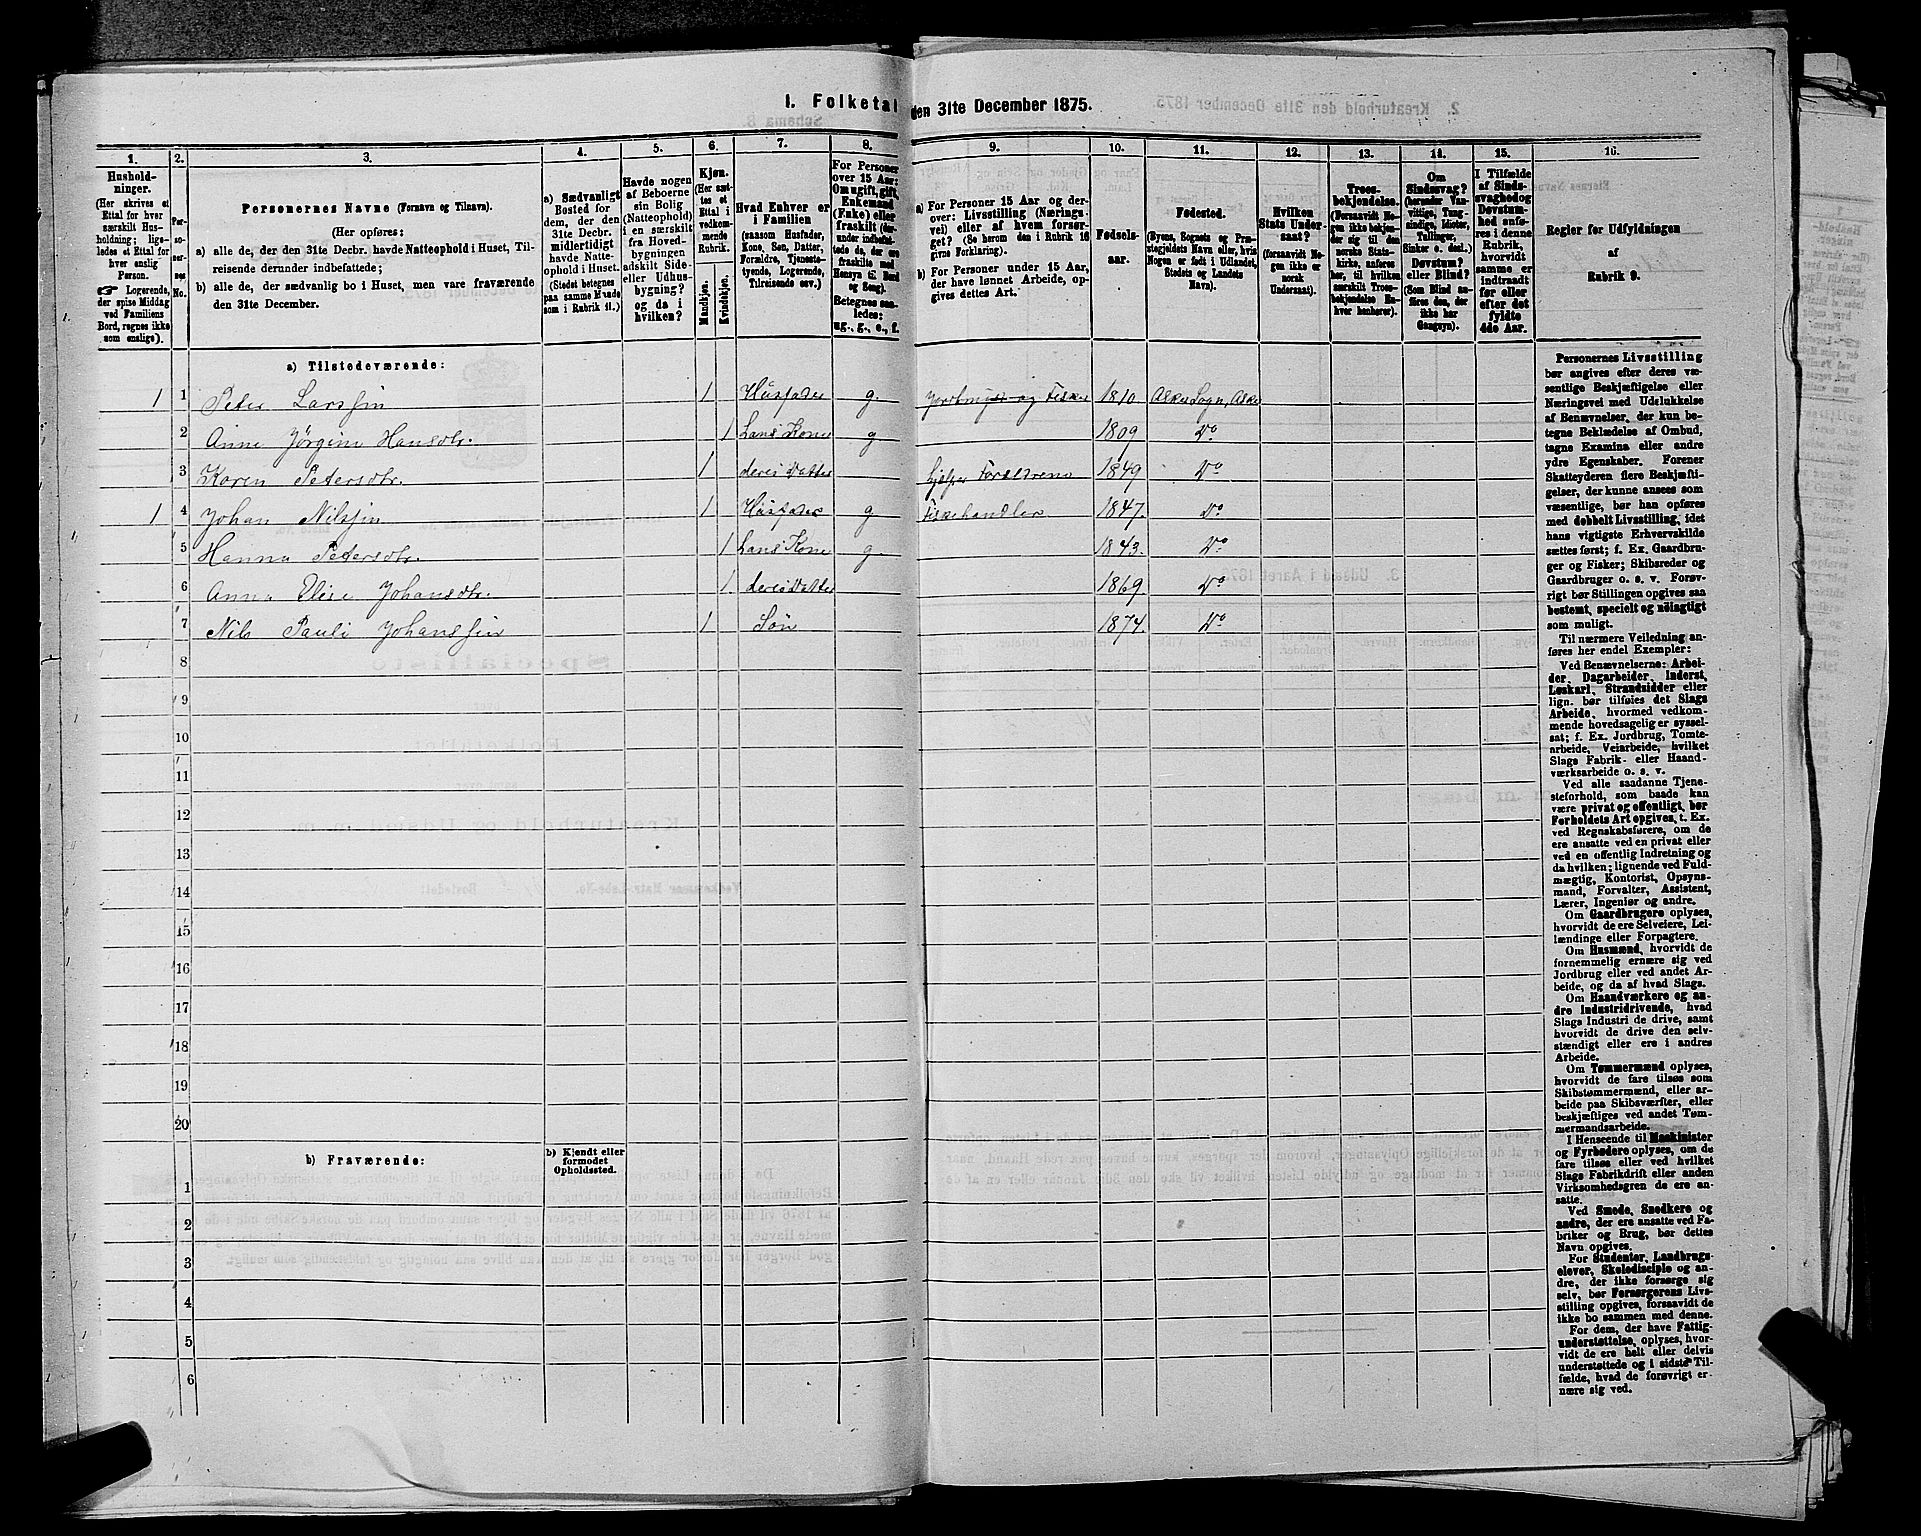 I. Folketal den 31te December 1875.
1. 2. 3. 4. 5. 6. 7. 8. 9. 10. 11. 12. 13. 14. 15. 16.
Hushold-
ninger.
(Her skrives et
Ettal for hver
særskilt Hus-
holdning; lige-
ledes et Ettal
for hver
enslig
Person.
☞ Logerende,
der spise Middag
ved Familiens
Bord, regnes ikke
som enslige).
Per-
so-
ner-
nes
No.
Personernes Navne (Fornavn og Tilnavn).
(Her opføres:
a) alle de, der den 31te Decbr. havde Natteophold i Huset, Til-
reisende derunder indbefattede;
b) alle de, der sædvanlig bo i Huset, men vare fraværende
den 31te December.
a) Sædvanligt
Bosted for
dem, der den
31te Decbr.
midlertidigt
havde Natte-
ophold i Huset.
(Stedet betegnes
paa samme Maade
som i Rubrik 11.)
Havde nogen
af Beboerne
sin Bolig
(Natteophold)
i en særskilt
fra Hoved-
bygningen
adskilt Side-
eller Udhus-
bygning?
og da i
hvilken?
Kjøn.
(Her sæt-
tes et
Ettal i
vedkom-
mende
Rubrik.
Mandkjøn.
Kvindekjøn.
Hvad Enhver er
i Familien
(saasom Husfader,
Kone, Søn, Datter,
Forældre, Tjeneste-
tyende, Logerende,
Tilreisende osv.)
For Personer
over 15 Aar:
Om ugift, gift,
Enkemand
(Enke) eller
fraskilt (der-
under indbefat-
tede de, der ere
fraskilte med
Hensyn til Bord
og Seng).
Betegnes saa-
ledes:
ug., g., e., f.
a) For Personer 15 Aar og der-
over: Livsstilling (Nærings-
vei) eller af hvem forsør-
get? (Se herom den i Rubrik 16
givne Forklaring).
b) For Personer under 15 Aar,
der have lønnet Arbeide, op-
gives dettes Art.
Fødsels-
aar.
Fødested.
(Byens, Sognets og Præ-
stegjeldets Navn eller, hvis
Nogen er født i Udlandet,
Stedets og Landets
Navn).
Hvilken
Stats Under-
saat?
(forsaavidt No-
gen ikke er
norsk
Undersaat).
Troes-
bekjendelse.
(Forsaavidt No-
gen ikke bekjen-
der sig til den
norske Stats-
kirke, anføres
her, til hvilken
særskilt Troes-
bekjendelse En-
hver henhører).
Om
Sindssvag?
(herunder Van-
vittige, Tung-
sindige, Idioter,
Tullinger,
Sinker o. desl.)
Døvstum?
eller Blind?
(Som Blind an-
føres den, der
ikke har
Gangsyn).
I Tilfælde
af Sinds-
svaghed og
Døvstum-
hed anfø-
res i denne
Rubrik,
hvorvidt
samme er
indtraadt
før eller
efter det
fyldte
4de Aar.
Regler for Udfyldningen
af
Rubrik 9.
a) Tilstedeværende:
1 1 Peter Larssen 1 Husfader g Jordbruger og Fisker 1810. Asker Sogn, Asker
2 Anne Jörgine Hansdtr. 1 hans Kone g 1809 Do
3 Karen Petersdtr. 1 deres Datter hjelper Forældrene 1849 Do
1 4 Johan Nilssen 1 Husfader g Fiskehandler 1847. Do
5 Hanna Petersdtr. 1 hans Kone g 1843. Do
6 Anna Elise Johansdtr. 1 deres Datter 1869. Do
7 Nils Pauli Johanssen 1 Søn 1874. Do
8
9
10
11
12
13
14
15
16
17
18
19
20
b) Fraværende: b) Kjendt eller
formodet
Opholdssted.
1
2
3
4
5
6
Personernes Livsstilling
bør angives efter deres væ-
sentlige Beskjæftigelse eller
Næringsvei med Udelukkelse
af Benævnelser, der kun be-
tegne Beklædelse af Ombud,
tagne Examina eller andre
ydre Egenskaber. Forener
Skatteyderen flere Beskjæfti-
gelser, der kunne ansees som
væsentlige, bør han opføres
med dobbelt Livsstilling, idet
hans vigtigste Erhvervskilde
sættes først; f. Ex. Gaardbru-
ger og Fisker; Skibsreder og
Gaardbruger o. s. v. Forøv-
rigt bør Stillingen opgives saa
bestemt, specielt og nøiagtigt
som muligt.
Til nærmere Veiledning an-
føres her endel Exempler:
Ved Benævnelserne: Arbei-
der, Dagarbeider, Inderst,
Løskarl, Strandsidder eller
lign. bør tilføies det Slags
Arbeide, hvormed vedkom-
mende hovedsagelig er syssel-
sat; f. Ex. Jordbrug, Tomte-
arbeide, Veiarbeide, hvilket
Slags Fabrik- eller Haand-
værksarbeide o. s. v.
Ved alle saadanne Tjene-
steforhold, som baade kan
være privat og offentligt, bør
Forholdets Art opgives, t. Ex.
ved Regnskabsførere, om de
ere ansatte ved en privat eller
ved en offentlig Indretning og
da hvilken; lignende ved Fuld-
mægtig, Kontorist, Opsyns-
mand, Forvalter, Assistent,
Lærer, Ingeniør og andre.
Om Gaardbrugere oplyses,
hvorvidt de ere Selveiere, Lei-
lændinge eller Forpagtere.
Om Husmænd, hvorvidt de
fornemmelig ernære sig ved
Jordbrug eller ved andet Ar-
beide, og da af hvad Slags.
Om Haandværkere og an-
dre Industridrivende, hvad
Slags Industri de drive, samt
hvorvidt de drive den selv-
stændigt eller ere i andres
Arbeide.
Om Tømmermænd oplyses,
hvorvidt de fare tilsøs som
Skibstømmermænd, eller ar-
beide paa Skibsværfter, eller
beskjæftiges ved andet Tøm-
mermandsarbeide.
I Henseende til Maskinister
og Fyrbødere oplyses, om de
fare tilsøs eller ved hvilket
Slags Fabrikdrift eller anden
Virksomhedsgren de ere an-
satte.
Ved Smede, Snedkere og
andre, der ere ansatte ved Fa-
briker og Brug, bør dettes
Navn opgives.
For Studenter, Landbrugs-
elever, Skoledisciple og an-
dre, der ikke forsørge sig
selv, bør Forsørgerens Livs-
stilling opgives, forsaavidt de
ikke bo sammen med denne.
For dem, der have Fattig-
understøttelse, oplyses, hvor-
vidt de ere helt eller delvis
understøttede og i sidste Til-
fælde, hvad de forøvrigt er-
nære sig ved.